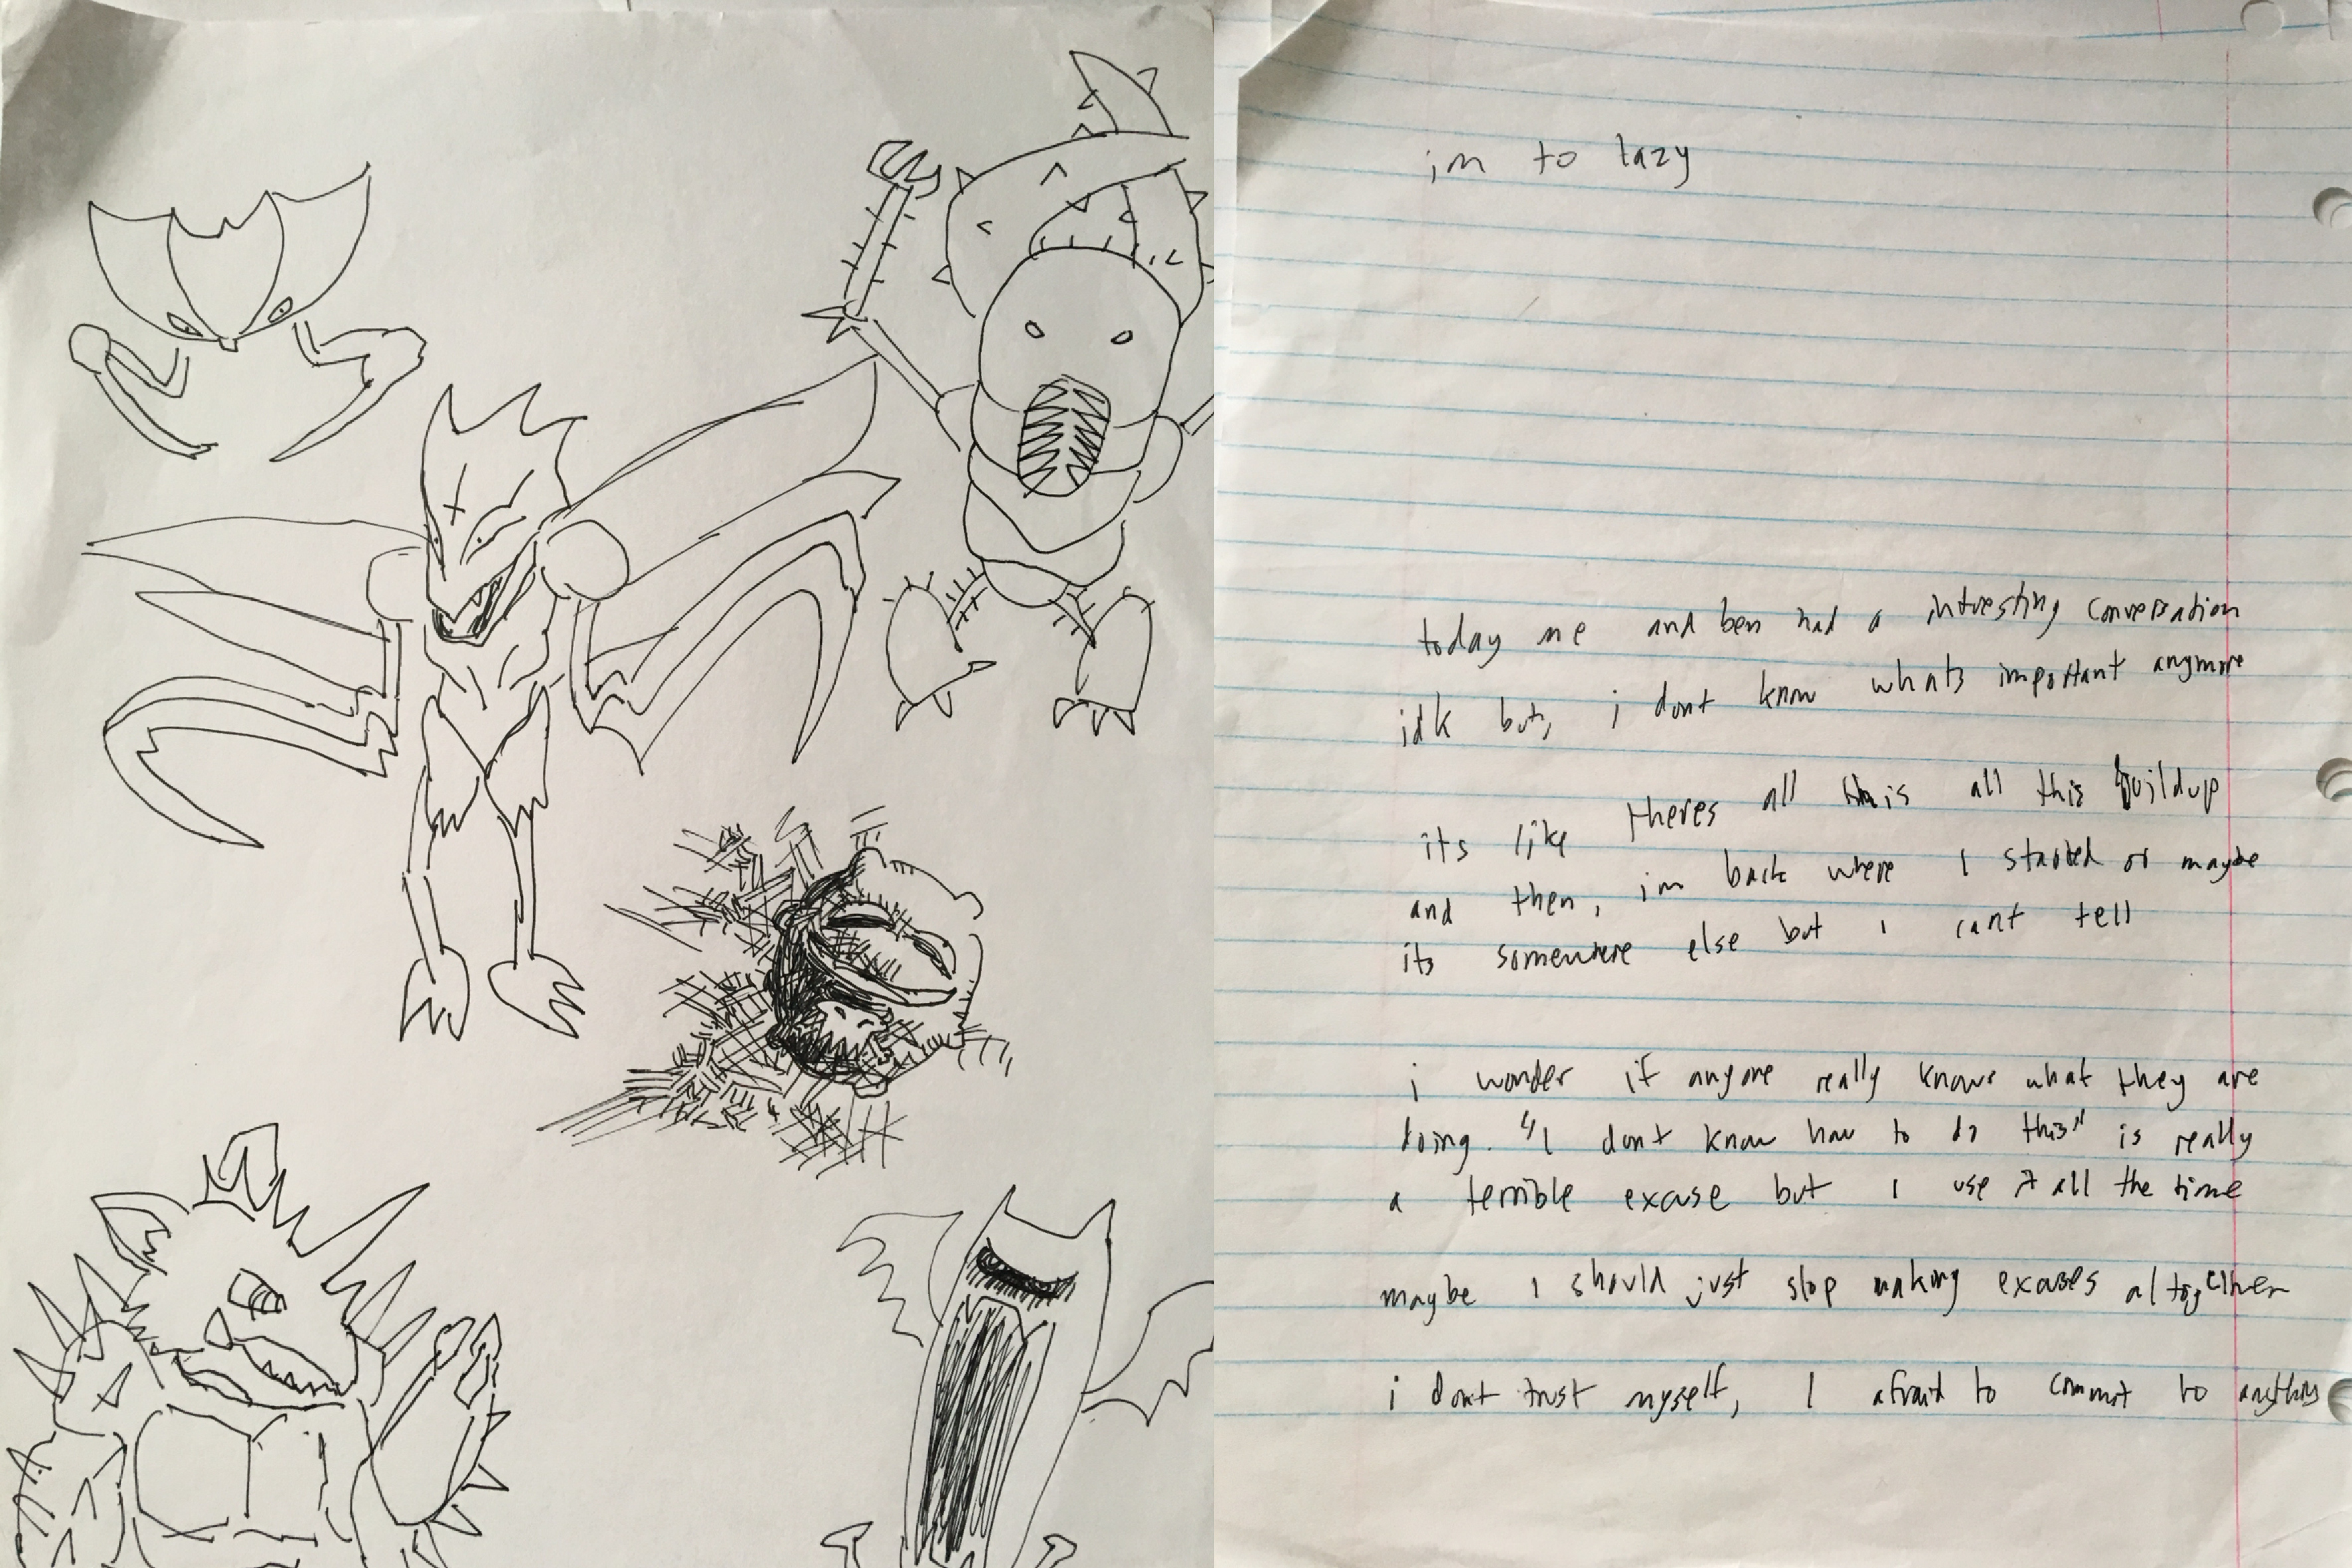 im to lazy
today me and ben had a intresting conversation
idk but, i dont know whats important anymore
its like theres all this all this buildup
and then, im back where I started or maybe
its somewhere else but I cant tell
i wonder if anyone really knows what they are
doing. "I dont know how to do this" is really
a terrible excuse but I use it all the time
maybe I should just stop making excuses altogether
i dont trust myself, I afraid to commit to anything